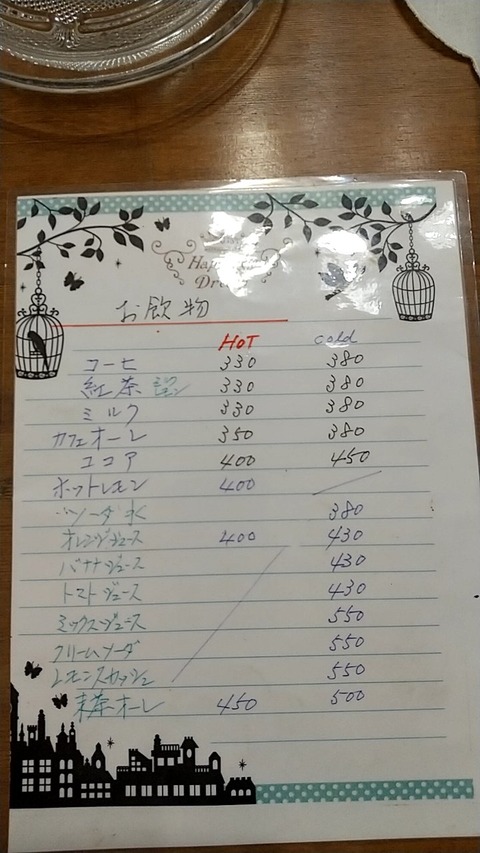 お飲物
HOT cold
コーヒ 330 380
紅茶 ミルク レモン 330 380
ミルク 330 380
カフェオーレ 350 380
ココア 400 450
ホットレモン 400
ソーダ水 380
オレンジジュース 400 430
バナナジュース 430
トマトジュース 430
ミックスジュース 550
クリームソーダ 550
レモンスカッシュ 550
抹茶オーレ 450 500